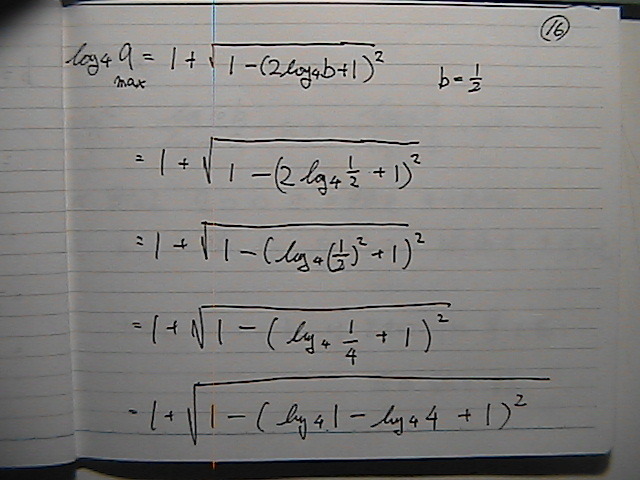 ⑯
log₄ a max = 1 + √(1 - (2log₄b+1)²) b = 1/2
= 1 + √(1 - (2 log₄ 1/2 + 1)²)
= 1 + √(1 - (log₄(1/2)² + 1)²)
= 1 + √(1 - (log₄ 1/4 + 1)²)
= 1 + √(1 - (log₄ 1 - log₄ 4 + 1)²)